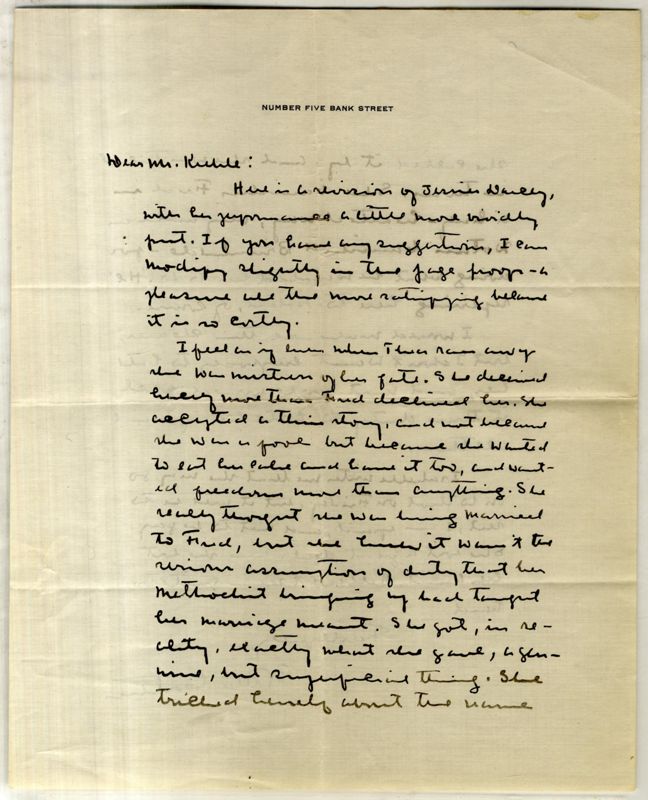 NUMBER FIVE BANK STREET
Dear Mr.
Here is a revision of
with her performance a little more vividly
put. If you have any suggestions, I can
modify slightly in the page proofs - a
pleasure all the more satisfying because
it is so costly.
I feel as if even when Thea ran away
she was mistress of her fate. She deceived
more than Fred deceived her. She
accepted a thin story, and not because
she was a fool but because she wanted
to eat her cake and have it too, and want-
ed freedom more than anything. She
really thought she was being married
to Fred, but she knew it wasn't the
serious assumption of duty that her
Methodist bringing up had taught
her marriage meant. She got, in re-
ality, exactly what she gave, a gen-
uine, but superficial thing. She
tricked herself about the name